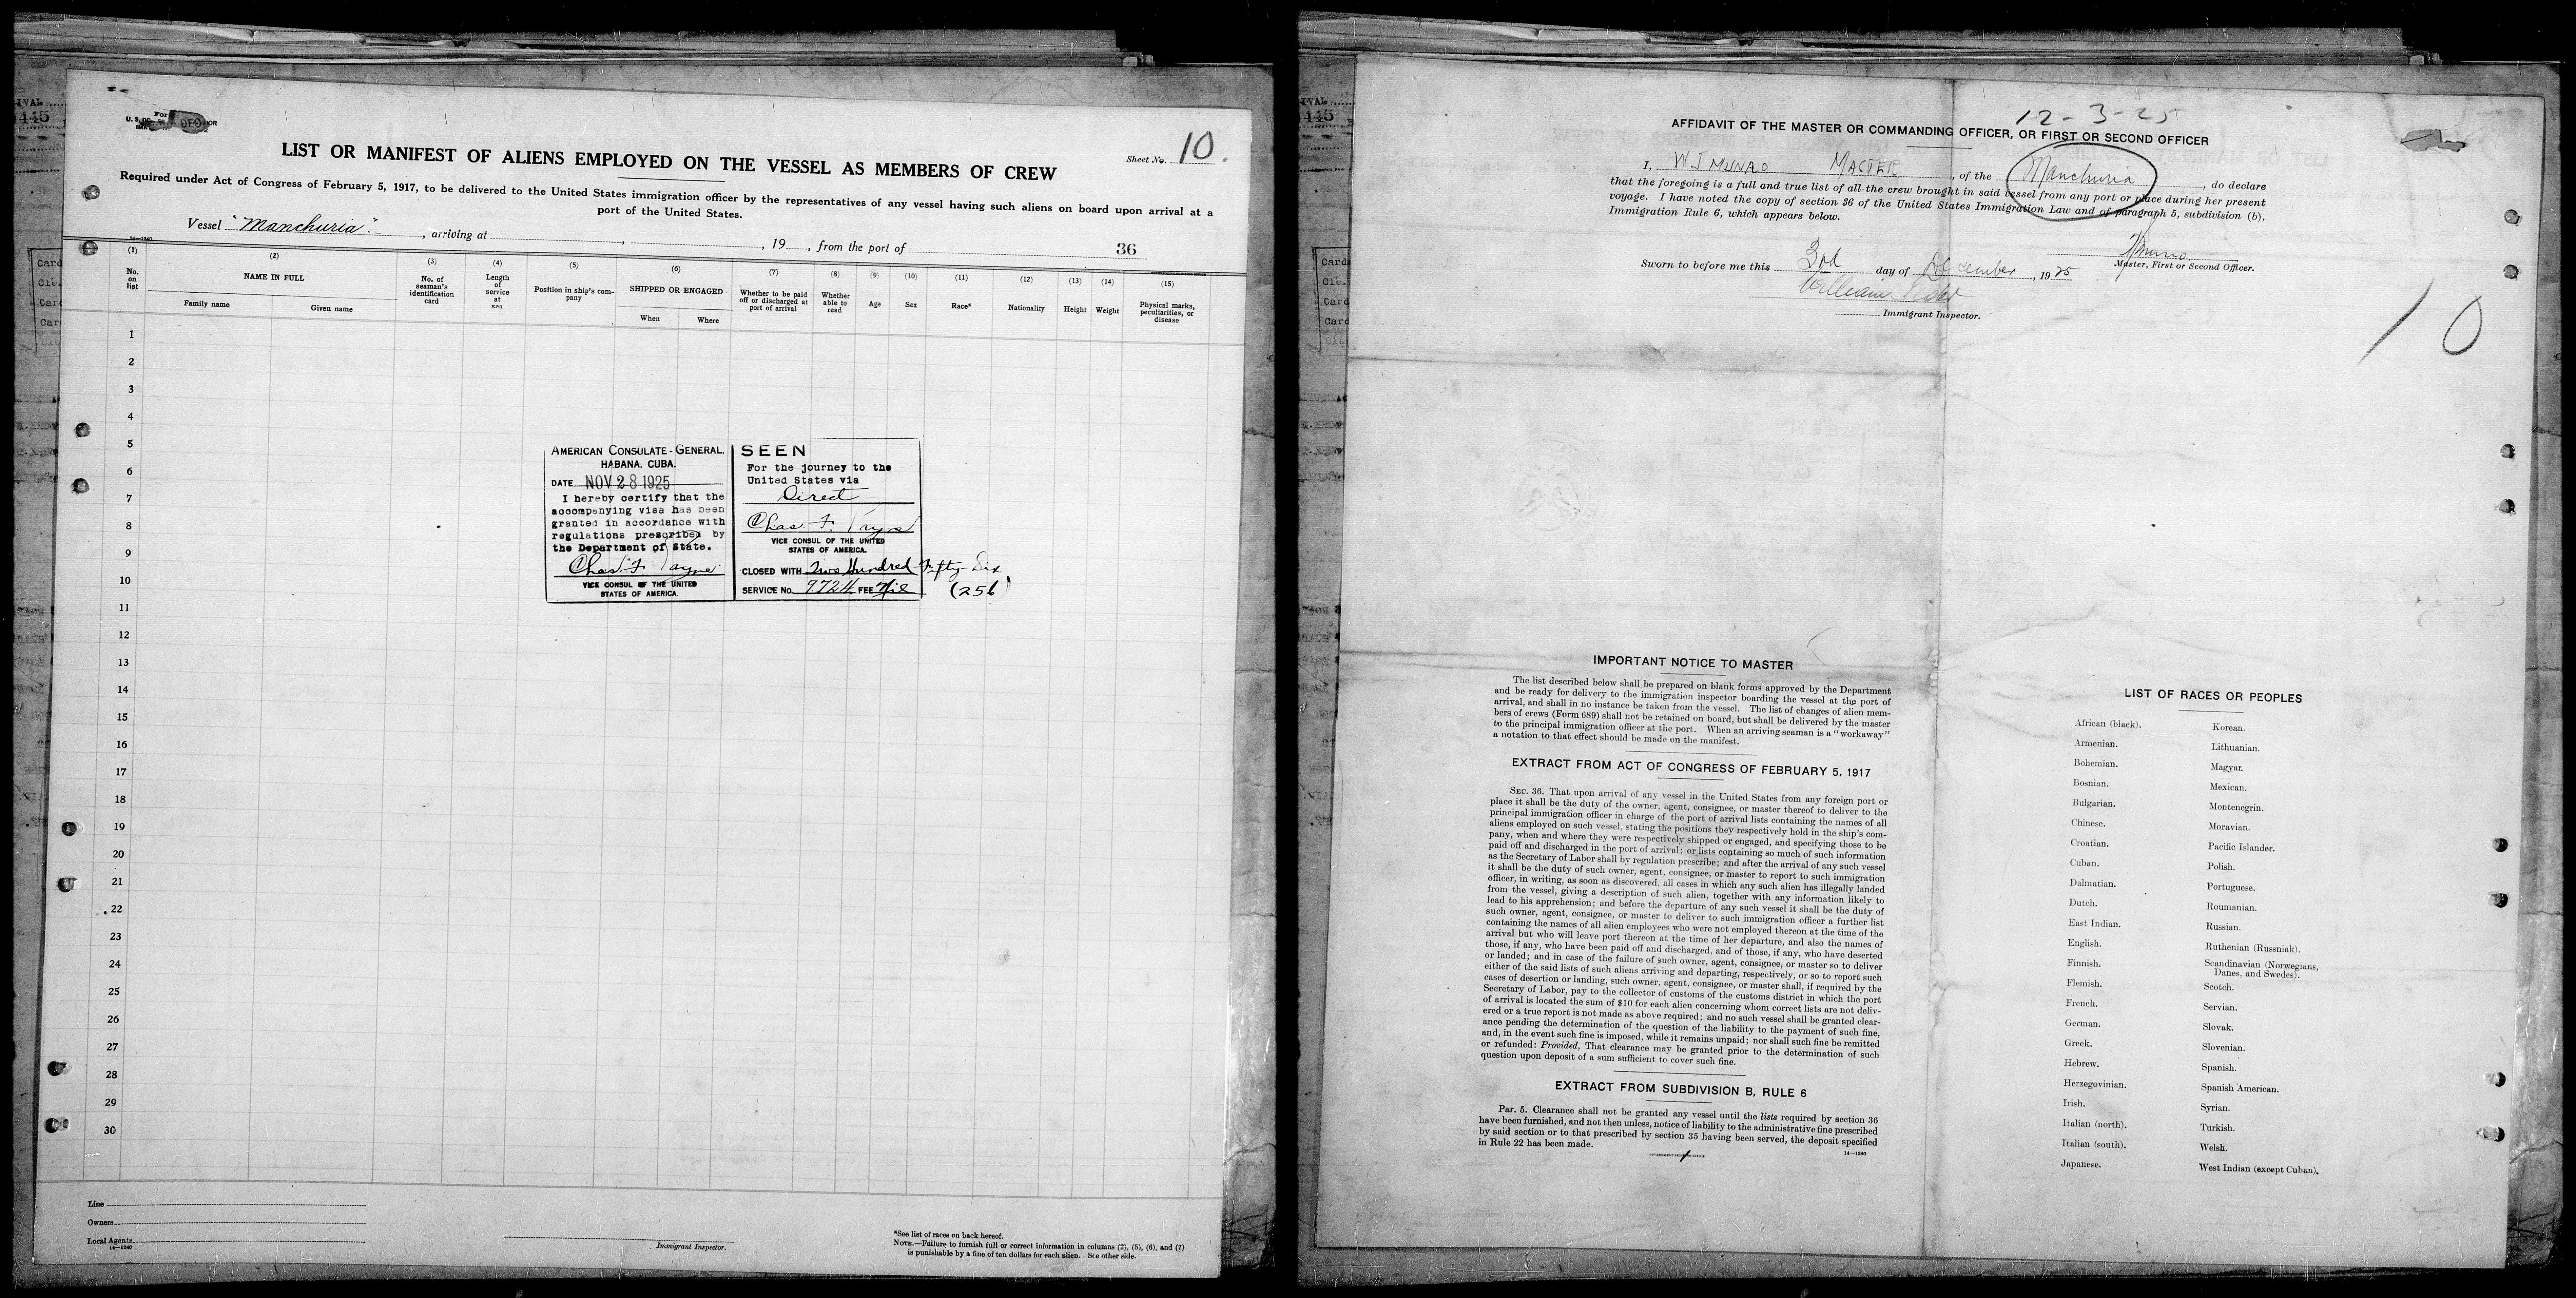 Sheet No. 10.
LIST OR MANIFEST OF ALIENS EMPLOYED ON THE VESSEL AS MEMBERS OF CREW
Required under Act of Congress of February 5, 1917, to be delivered to the United States immigration officer by the representatives of any vessel having such aliens on board upon arrival at a
port of the United States.
Vessel "Manchuria", arriving at , , 19 , from the port of 36
14-1240
(1) (2) (3) (4) (5) (6) (7) (8) (9) (10) (11) (12) (13) (14) (15)
No. on list
NAME IN FULL
Family name
Given name
No. of seaman's identification card
Length of service at sea
Position in ship's company
SHIPPED OR ENGAGED
When
Where
Whether to be paid off or discharged at port of arrival
Whether able to read
Age
Sex
Race*
Nationality
Height
Weight
Physical marks, peculiarities, or disease
1
2
3
4
5
6
7
8
9
10
11
12
13
14
15
16
17
18
19
20
21
22
23
24
25
26
27
28
29
30
AMERICAN CONSULATE-GENERAL,
HABANA. CUBA.
DATE NOV 28 1925
I hereby certify that the
accompanying visa has been
granted in accordance with
regulations prescribed by
the Department of State.
Chas. F. Payne
VICE CONSUL OF THE UNITED
STATES OF AMERICA.
SEEN
For the journey to the
United States via
Direct
Chas. F. Payne
VICE CONSUL OF THE UNITED
STATES OF AMERICA.
CLOSED WITH Two Hundred Fifty-Six
SERVICE No. 9724 FEE Nil (256)
Line
Owners
Local Agents
14-1240
Immigrant Inspector.
*See list of races on back hereof.
NOTE.—Failure to furnish full or correct information in columns (2), (5), (6), and (7)
is punishable by a fine of ten dollars for each alien. See other side.
12-3-25
AFFIDAVIT OF THE MASTER OR COMMANDING OFFICER, OR FIRST OR SECOND OFFICER
I, W J MUNRO MASTER, of the Manchuria, do declare
that the foregoing is a full and true list of all the crew brought in said vessel from any port or place during her present
voyage. I have noted the copy of section 36 of the United States Immigration Law and of paragraph 5, subdivision (b),
Immigration Rule 6, which appears below.
Munro
Master, First or Second Officer.
Sworn to before me this 3rd day of December, 1925
William
Immigrant Inspector.
10
IMPORTANT NOTICE TO MASTER
The list described below shall be prepared on blank forms approved by the Department
and be ready for delivery to the immigration inspector boarding the vessel at the port of
arrival, and shall in no instance be taken from the vessel. The list of changes of alien mem-
bers of crews (Form 689) shall not be retained on board, but shall be delivered by the master
to the principal immigration officer at the port. When an arriving seaman is a "workaway"
a notation to that effect should be made on the manifest.
EXTRACT FROM ACT OF CONGRESS OF FEBRUARY 5, 1917
SEC. 36. That upon arrival of any vessel in the United States from any foreign port or
place it shall be the duty of the owner, agent, consignee, or master thereof to deliver to the
principal immigration officer in charge of the port of arrival lists containing the names of all
aliens employed on such vessel, stating the positions they respectively hold in the ship's com-
pany, when and where they were respectively shipped or engaged, and specifying those to be
paid off and discharged in the port of arrival; or lists containing so much of such information
as the Secretary of Labor shall by regulation prescribe; and after the arrival of any such vessel
it shall be the duty of such owner, agent, consignee, or master to report to such immigration
officer, in writing, as soon as discovered, all cases in which any such alien has illegally landed
from the vessel, giving a description of such alien, together with any information likely to
lead to his apprehension; and before the departure of any such vessel it shall be the duty of
such owner, agent, consignee, or master to deliver to such immigration officer a further list
containing the names of all alien employees who were not employed thereon at the time of the
arrival but who will leave port thereon at the time of her departure, and also the names of
those, if any, who have been paid off and discharged, and of those, if any, who have deserted
or landed; and in case of the failure of such owner, agent, consignee, or master so to deliver
either of the said lists of such aliens arriving and departing, respectively, or so to report such
cases of desertion or landing, such owner, agent, consignee, or master shall, if required by the
Secretary of Labor, pay to the collector of customs of the customs district in which the port
of arrival is located the sum of $10 for each alien concerning whom correct lists are not deliv-
ered or a true report is not made as above required; and no such vessel shall be granted clear-
ance pending the determination of the question of the liability to the payment of such fine,
and, in the event such fine is imposed, while it remains unpaid; nor shall such fine be remitted
or refunded: Provided, That clearance may be granted prior to the determination of such
question upon deposit of a sum sufficient to cover such fine.
EXTRACT FROM SUBDIVISION B, RULE 6
Par. 5. Clearance shall not be granted any vessel until the lists required by section 36
have been furnished, and not then unless, notice of liability to the administrative fine prescribed
by said section or to that prescribed by section 35 having been served, the deposit specified
in Rule 22 has been made.
14—1240
LIST OF RACES OR PEOPLES
African (black).
Armenian.
Bohemian.
Bosnian.
Bulgarian.
Chinese.
Croatian.
Cuban.
Dalmatian.
Dutch.
East Indian.
English.
Finnish.
Flemish.
French.
German.
Greek.
Hebrew.
Herzegovinian.
Irish.
Italian (north).
Italian (south).
Japanese.
Korean.
Lithuanian.
Magyar.
Mexican.
Montenegrin.
Moravian.
Pacific Islander.
Polish.
Portuguese.
Roumanian.
Russian.
Ruthenian (Russniak).
Scandinavian (Norwegians,
Danes, and Swedes).
Scotch.
Servian.
Slovak.
Slovenian.
Spanish.
Spanish American.
Syrian.
Turkish.
Welsh.
West Indian (except Cuban).